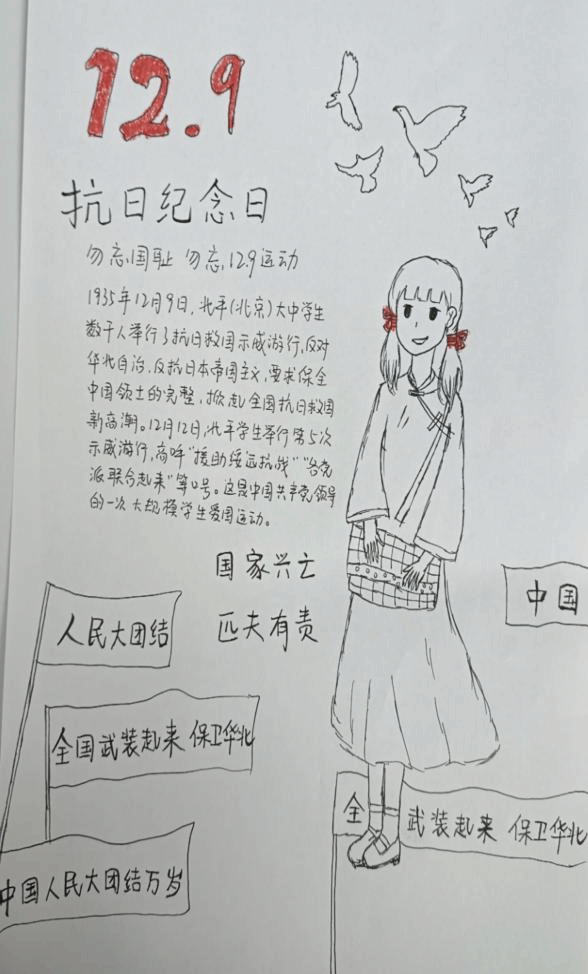 12.9
抗日纪念日
勿忘国耻 勿忘12.9运动
1935年12月9日,北平(北京)大中学生
数千人举行了抗日救国示威游行,反对
华北自治,反抗日本帝国主义,要求保全
中国领土的完整,掀起全国抗日救国
新高潮。12月12日,北平学生举行第5次
示威游行,高呼"援助绥远抗战""各党
派联合起来"等口号。这是中国共产党领导
的一次大规模学生爱国运动。
国家兴亡
匹夫有责
中国
人民大团结
全国武装起来 保卫华北
全 武装起来 保卫华北
中国人民大团结万岁